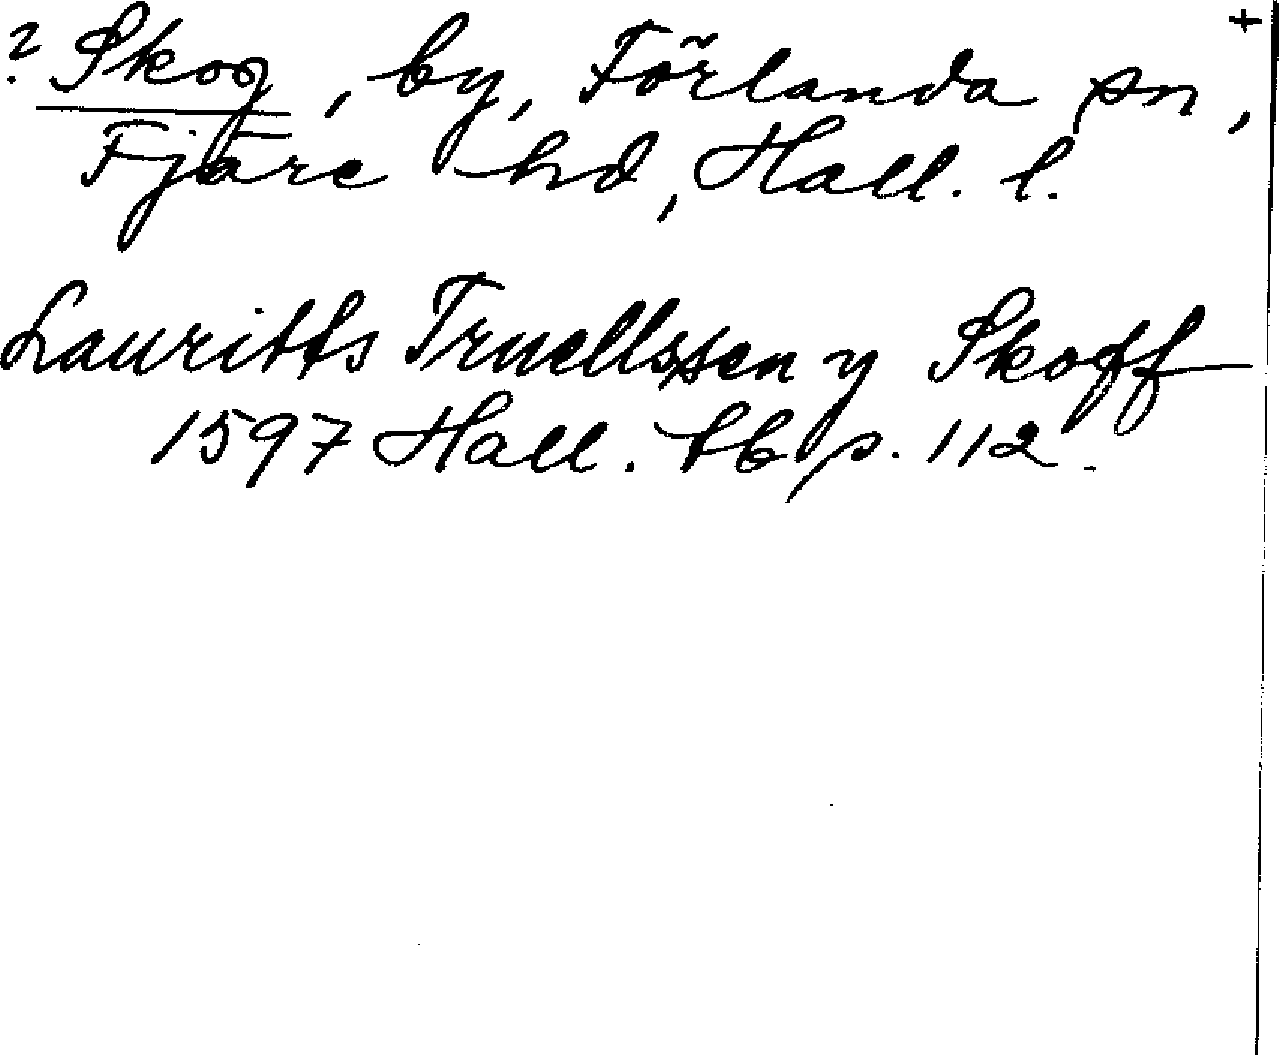 ? Skog, by, Förlanda sn, +
Fjäre hd, Hall. l.
Lauritts Truellssen y Skoff
1597 Hall. bb p. 112.